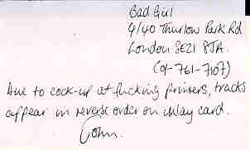 Bad Girl
4/40 Thurlow Park Rd
London SE21 8JA.
(01-761-7107)
Due to cock-up at fucking printers, tracks
appear in reverse order on inlay card.
John.